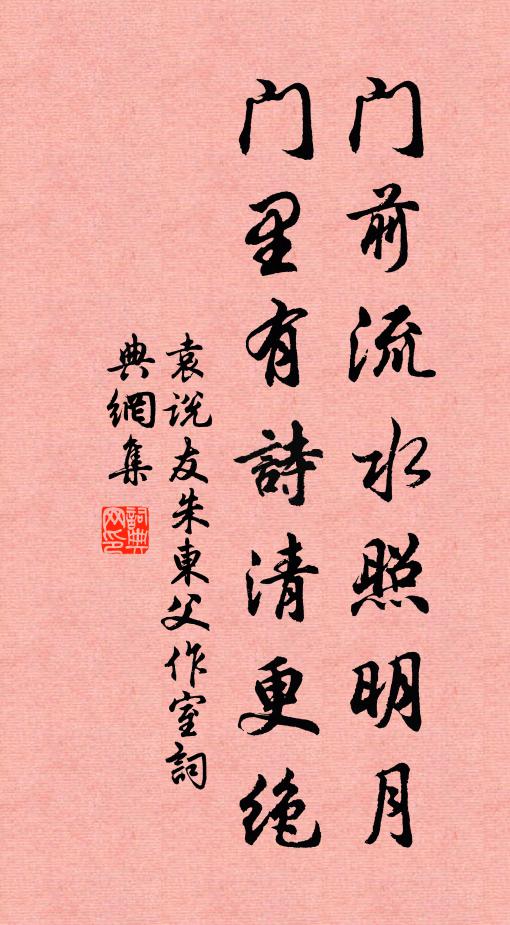 门前流水照明月
门里有詩清更绝
袁说友朱東父作室詞
典網集
詞典网印